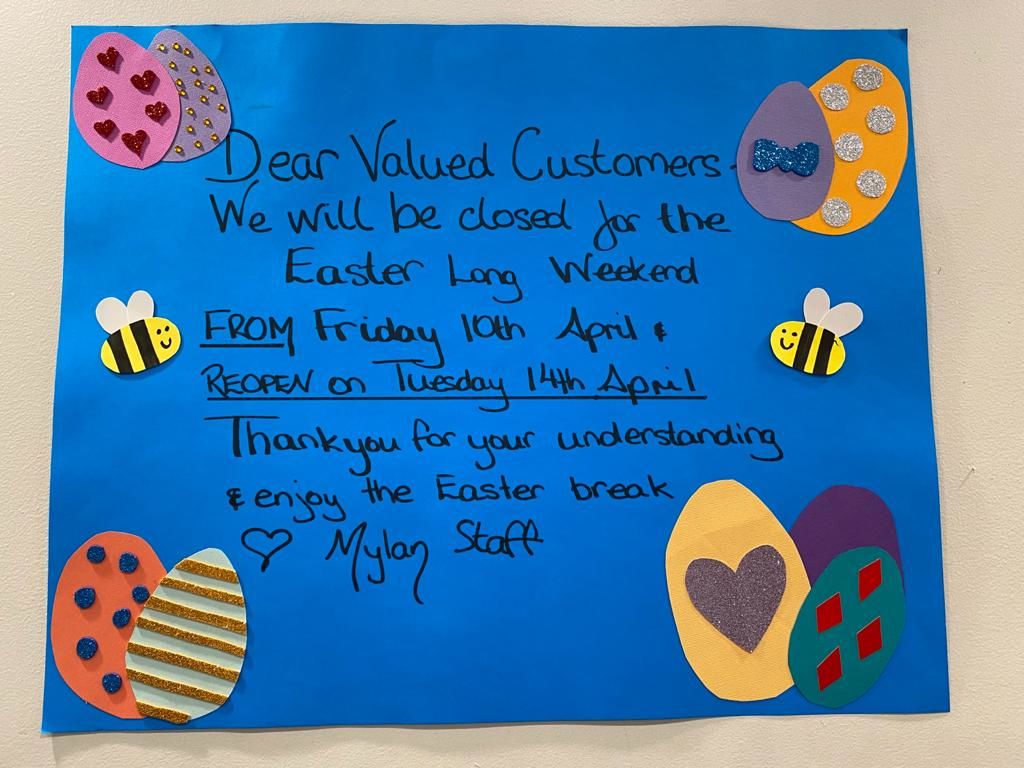 Dear Valued Customers.
We will be closed for the
Easter Long Weekend
FROM Friday 10th April &
REOPEN on Tuesday 14th April
Thankyou for your understanding
& enjoy the Easter break
♡ Mylan Staff